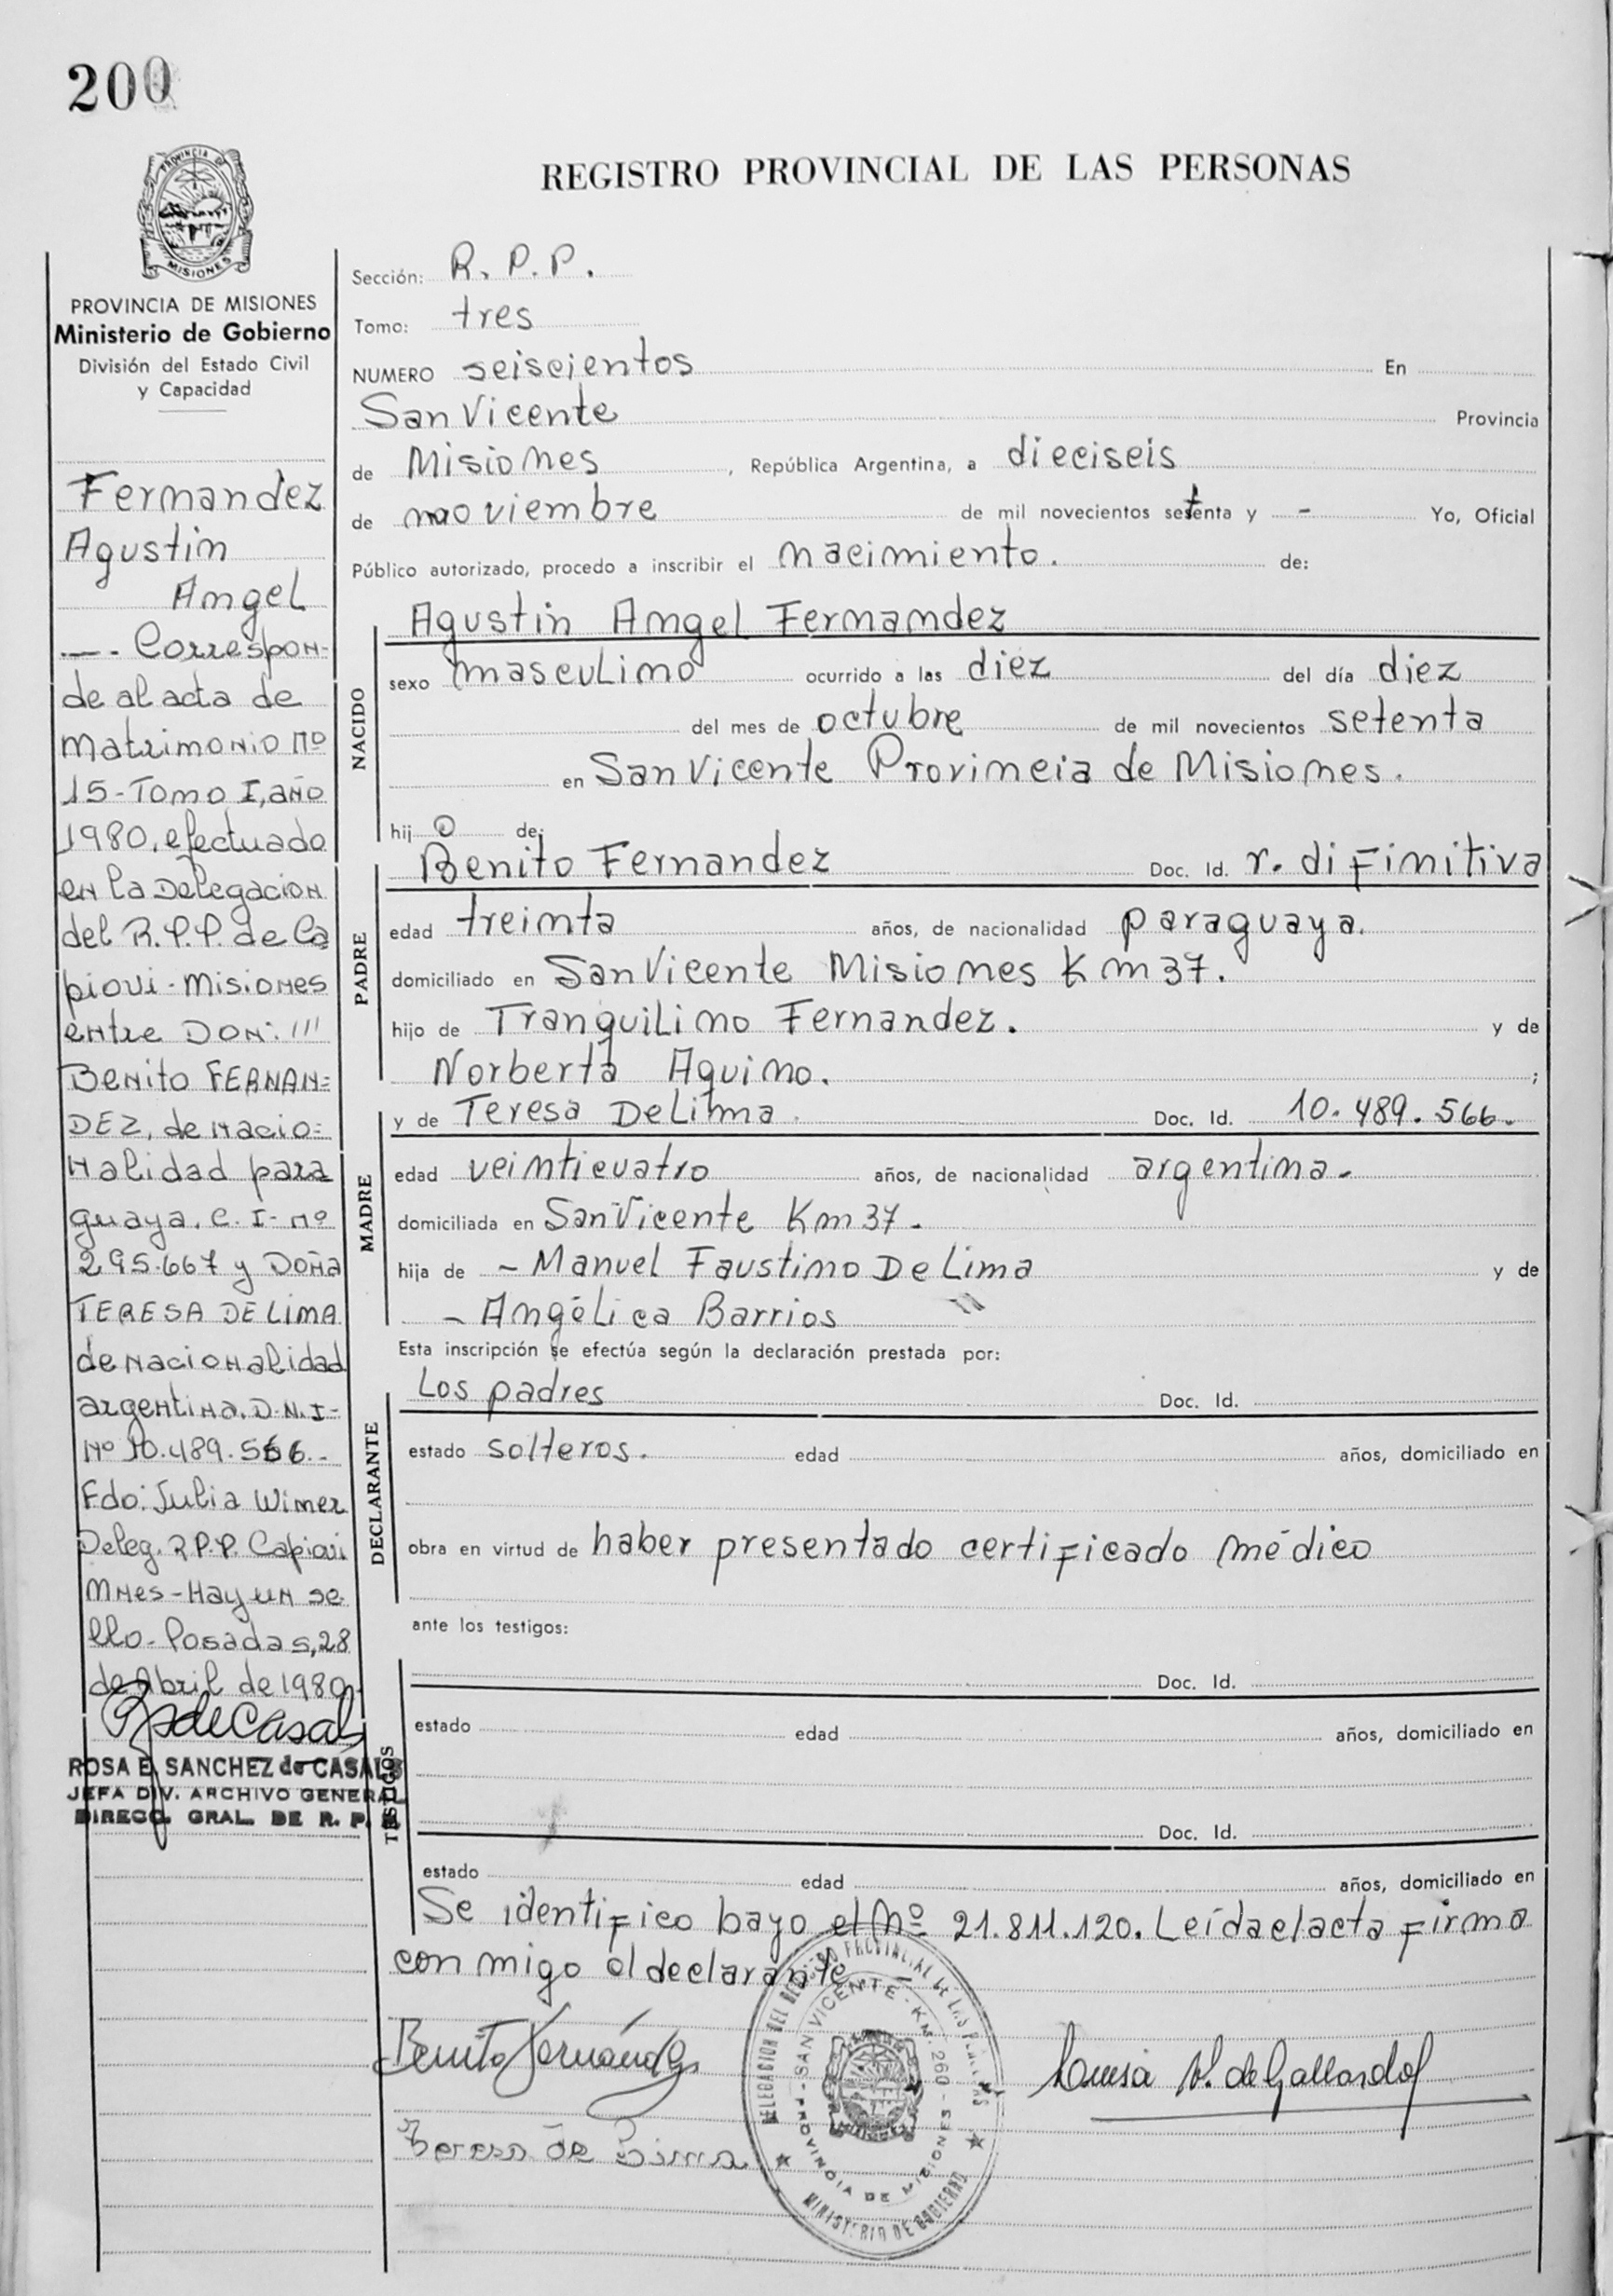 200
PROVINCIA DE
MISIONES
PROVINCIA DE MISIONES
Ministerio de Gobierno
División del Estado Civil
y Capacidad
Fernandez
Agustin
Angel
—. Correspon-
de al acta de
Matrimonio Nº
15-Tomo I, año
1980, efectuado
en la Delegacion
del R.P.P. de Ca
piovi - Misiones
entre Don: '''
Benito FERNAN=
DEZ, de nacio=
nalidad para
guaya. C. I- Nº
295.667 y Doña
TERESA DE LIMA
de nacionalidad
argentina. D.N.I-
Nº 10.489.566.-
Fdo: Julia Wimer
Deleg. R.P.P. Capiovi
Mnes-Hay un se
llo- Posadas, 28
de Abril de 1980.
ROSA E. SANCHEZ de CASALS
JEFA DIV. ARCHIVO GENERAL
DIRECC. GRAL. DE R. P.
REGISTRO PROVINCIAL DE LAS PERSONAS
Sección: R. P. P.
Tomo: tres
NUMERO seiscientos En
San Vicente Provincia
de Misiones, República Argentina, a dieciseis
de noviembre de mil novecientos setenta y - Yo, Oficial
Público autorizado, procedo a inscribir el nacimiento. de:
NACIDO
Agustin Angel Fernandez
sexo masculino ocurrido a las diez del día diez
del mes de octubre de mil novecientos setenta
en San Vicente Provincia de Misiones.
hijo de:
PADRE
Benito Fernandez Doc. Id. r. difinitiva
edad treinta años, de nacionalidad paraguaya.
domiciliado en San Vicente Misiones Km 37.
hijo de Tranquilino Fernandez. y de
Norberta Aquino. ;
MADRE
y de Teresa De Lima. Doc. Id. 10.489.566.
edad veinticuatro años, de nacionalidad argentina.
domiciliada en San Vicente Km 37.
hija de - Manuel Faustino De Lima y de
- Angélica Barrios
Esta inscripción se efectúa según la declaración prestada por:
DECLARANTE
Los padres Doc. Id.
estado solteros. edad años, domiciliado en
obra en virtud de haber presentado certificado médico
ante los testigos:
TESTIGOS
Doc. Id.
estado edad años, domiciliado en
Doc. Id.
estado edad años, domiciliado en
Se identifico bayo el Nº 21.811.120. Leida el acta firma
con migo el declarante
Benito Fernández
Luisa V. de Gallardo
Teresa de Lima
DELEGACION DEL REGISTRO PROVINCIAL DE LAS PERSONAS
SAN VICENTE - KM. 260 -
PROVINCIA DE MISIONES
MINISTERIO DE GOBIERNO